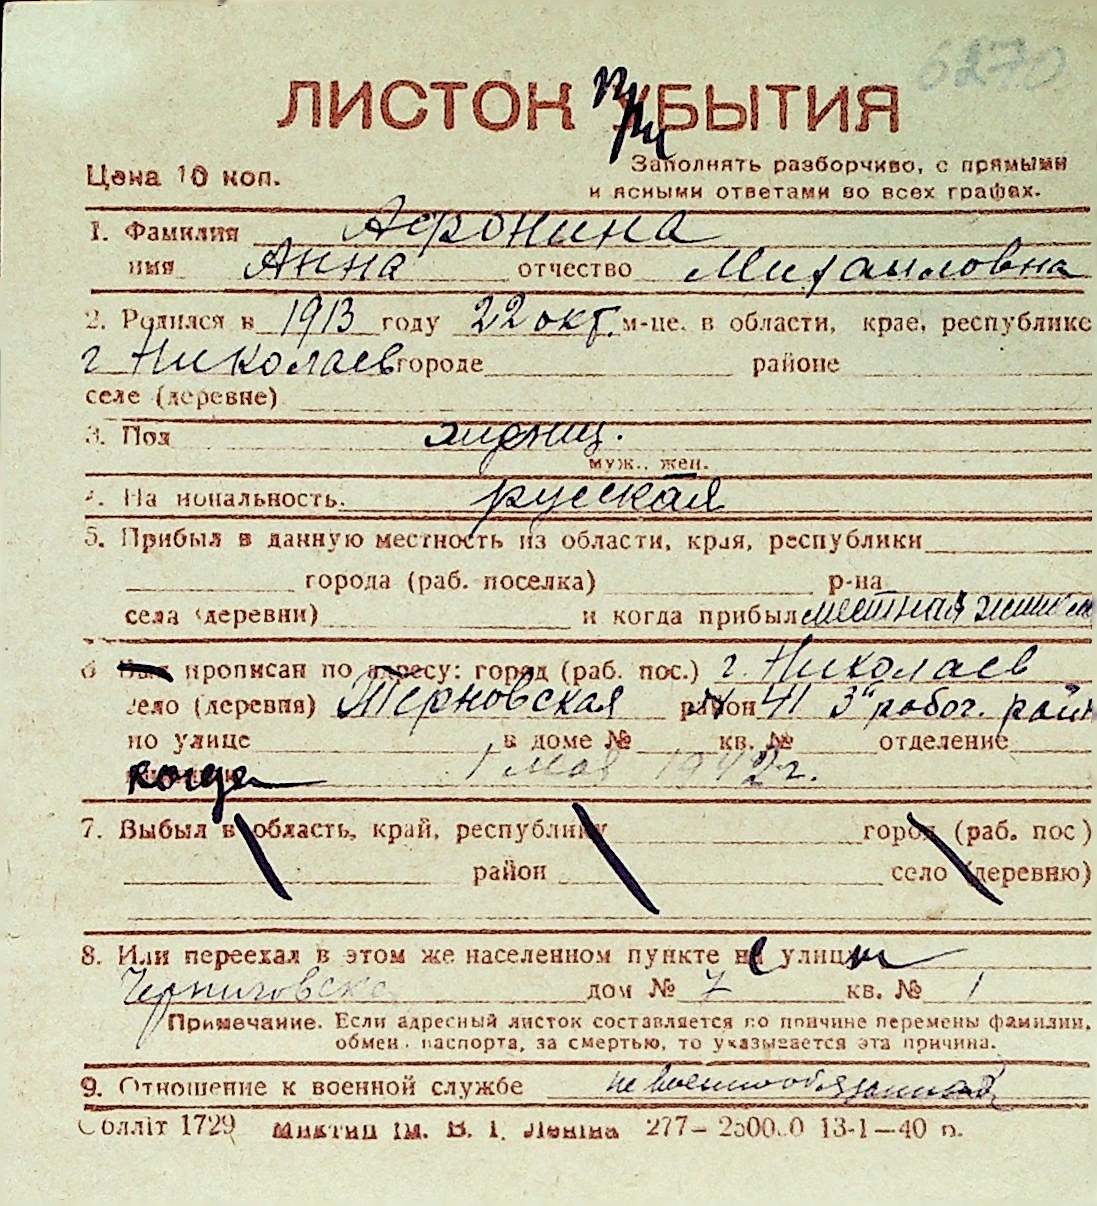 6270
ЛИСТОК ПриБЫТИЯ
Цена 10 коп.
Заполнять разборчиво, с прямыми
и ясными ответами во всех графах.
1. Фамилия Афронина
имя Анна отчество Михаиловна
2. Родился в 1913 году 22 окт. м-це, в области, крае, республике
г Николаев городе районе
селе (деревне)
3. Пол женщ.
муж., жен.
4. Национальность русская
5. Прибыл в данную местность из области, края, республики
города (раб. поселка) р-на
села (деревни) и когда прибыл местная
6 прописан по адресу: город (раб. пос.) г. Николаев
село (деревня) Терновская район 41 3й рабоч. район
по улице в доме № кв. № отделение
когда 1 мая 1942 г.
7. Выбыл в область, край, республику город (раб. пос)
район село (деревню)
8. Или переехал в этом же населенном пункте с улицы
Черниговска дом № 7 кв. № 1
Примечание. Если адресный листок составляется по причине перемены фамилии,
обмен. паспорта, за смертью, то указывается эта причина.
9. Отношение к военной службе невоеннообязанная
Обллiт 1729 iм. В. I. Ленiна 277— 13-1—40 р.